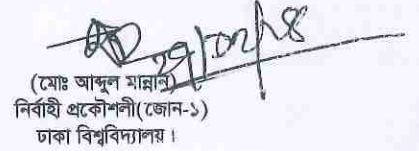 (মোঃ আব্দুল মান্নান)
নির্বাহী প্রকৌশলী(জোন-১)
ঢাকা বিশ্ববিদ্যালয়।